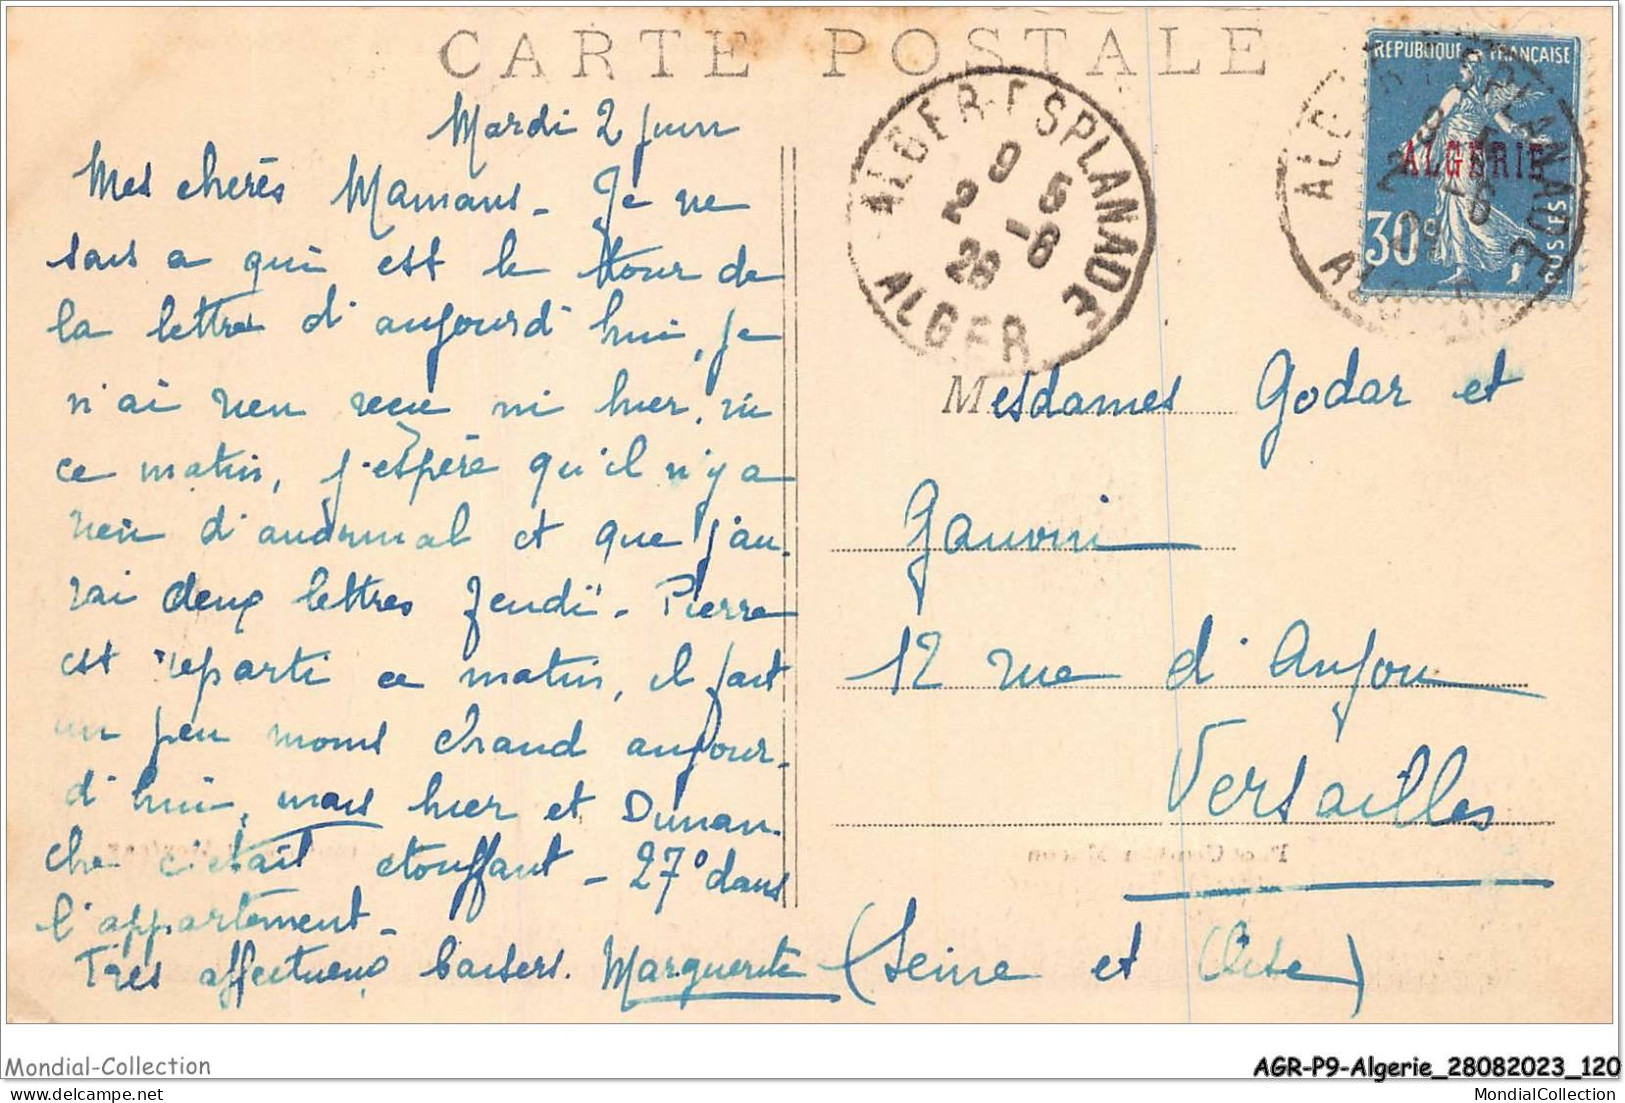 CARTE POSTALE
Mardi 2 juin
Mes chères Mamans - Je ne
sais a qui est le tour de
la lettre d'aujourd'hui, je
n'ai rien reçu ni hier, ni
ce matin, j'espère qu'il n'y a
rien d'anormal et que j'au-
rai deux lettres Jeudi - Pierre
est reparti ce matin, il fait
un peu moins chaud aujour-
d'hui, mais hier et Diman-
che c'était étouffant - 27° dans
l'appartement -
Très affectueux baisers. Marguerite
ALGER-ESPLANADE
9 5
2 -6
26
ALGER
REPUBLIQUE FRANÇAISE
ALGERIE
30c
POSTES
Mesdames Godar et
Gauvrii
12 rue d'Anjou
Versailles
(Seine et Oise)
Mondial-Collection
AGR-P9-Algerie_28082023_120
MondialCollection